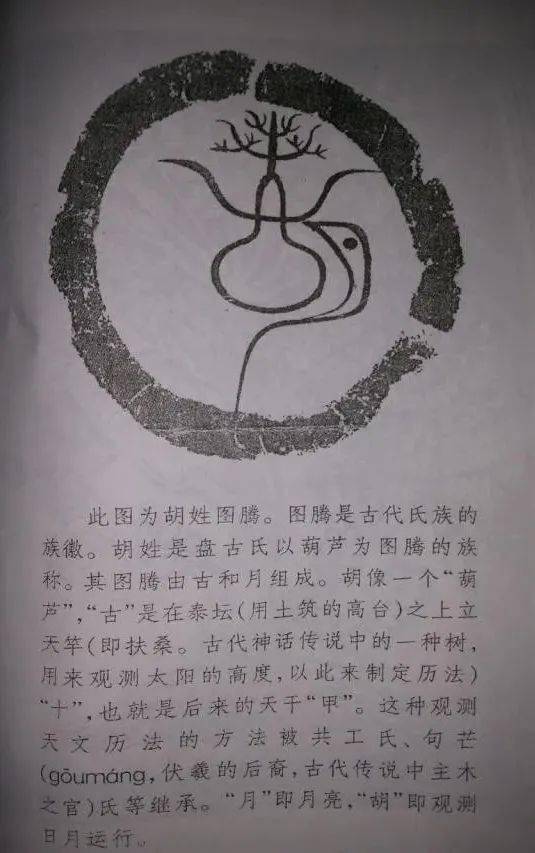 此图为胡姓图腾。图腾是古代氏族的
族徽。胡姓是盘古氏以葫芦为图腾的族
称。其图腾由古和月组成。胡像一个“葫
芦”,“古”是在泰坛(用土筑的高台)之上立
天竿(即扶桑。古代神话传说中的一种树,
用来观测太阳的高度,以此来制定历法)
“十”,也就是后来的天干“甲”。这种观测
天文历法的方法被共工氏、句芒
(gōumáng,伏羲的后裔,古代传说中主木
之官)氏等继承。“月”即月亮,“胡”即观测
日月运行。